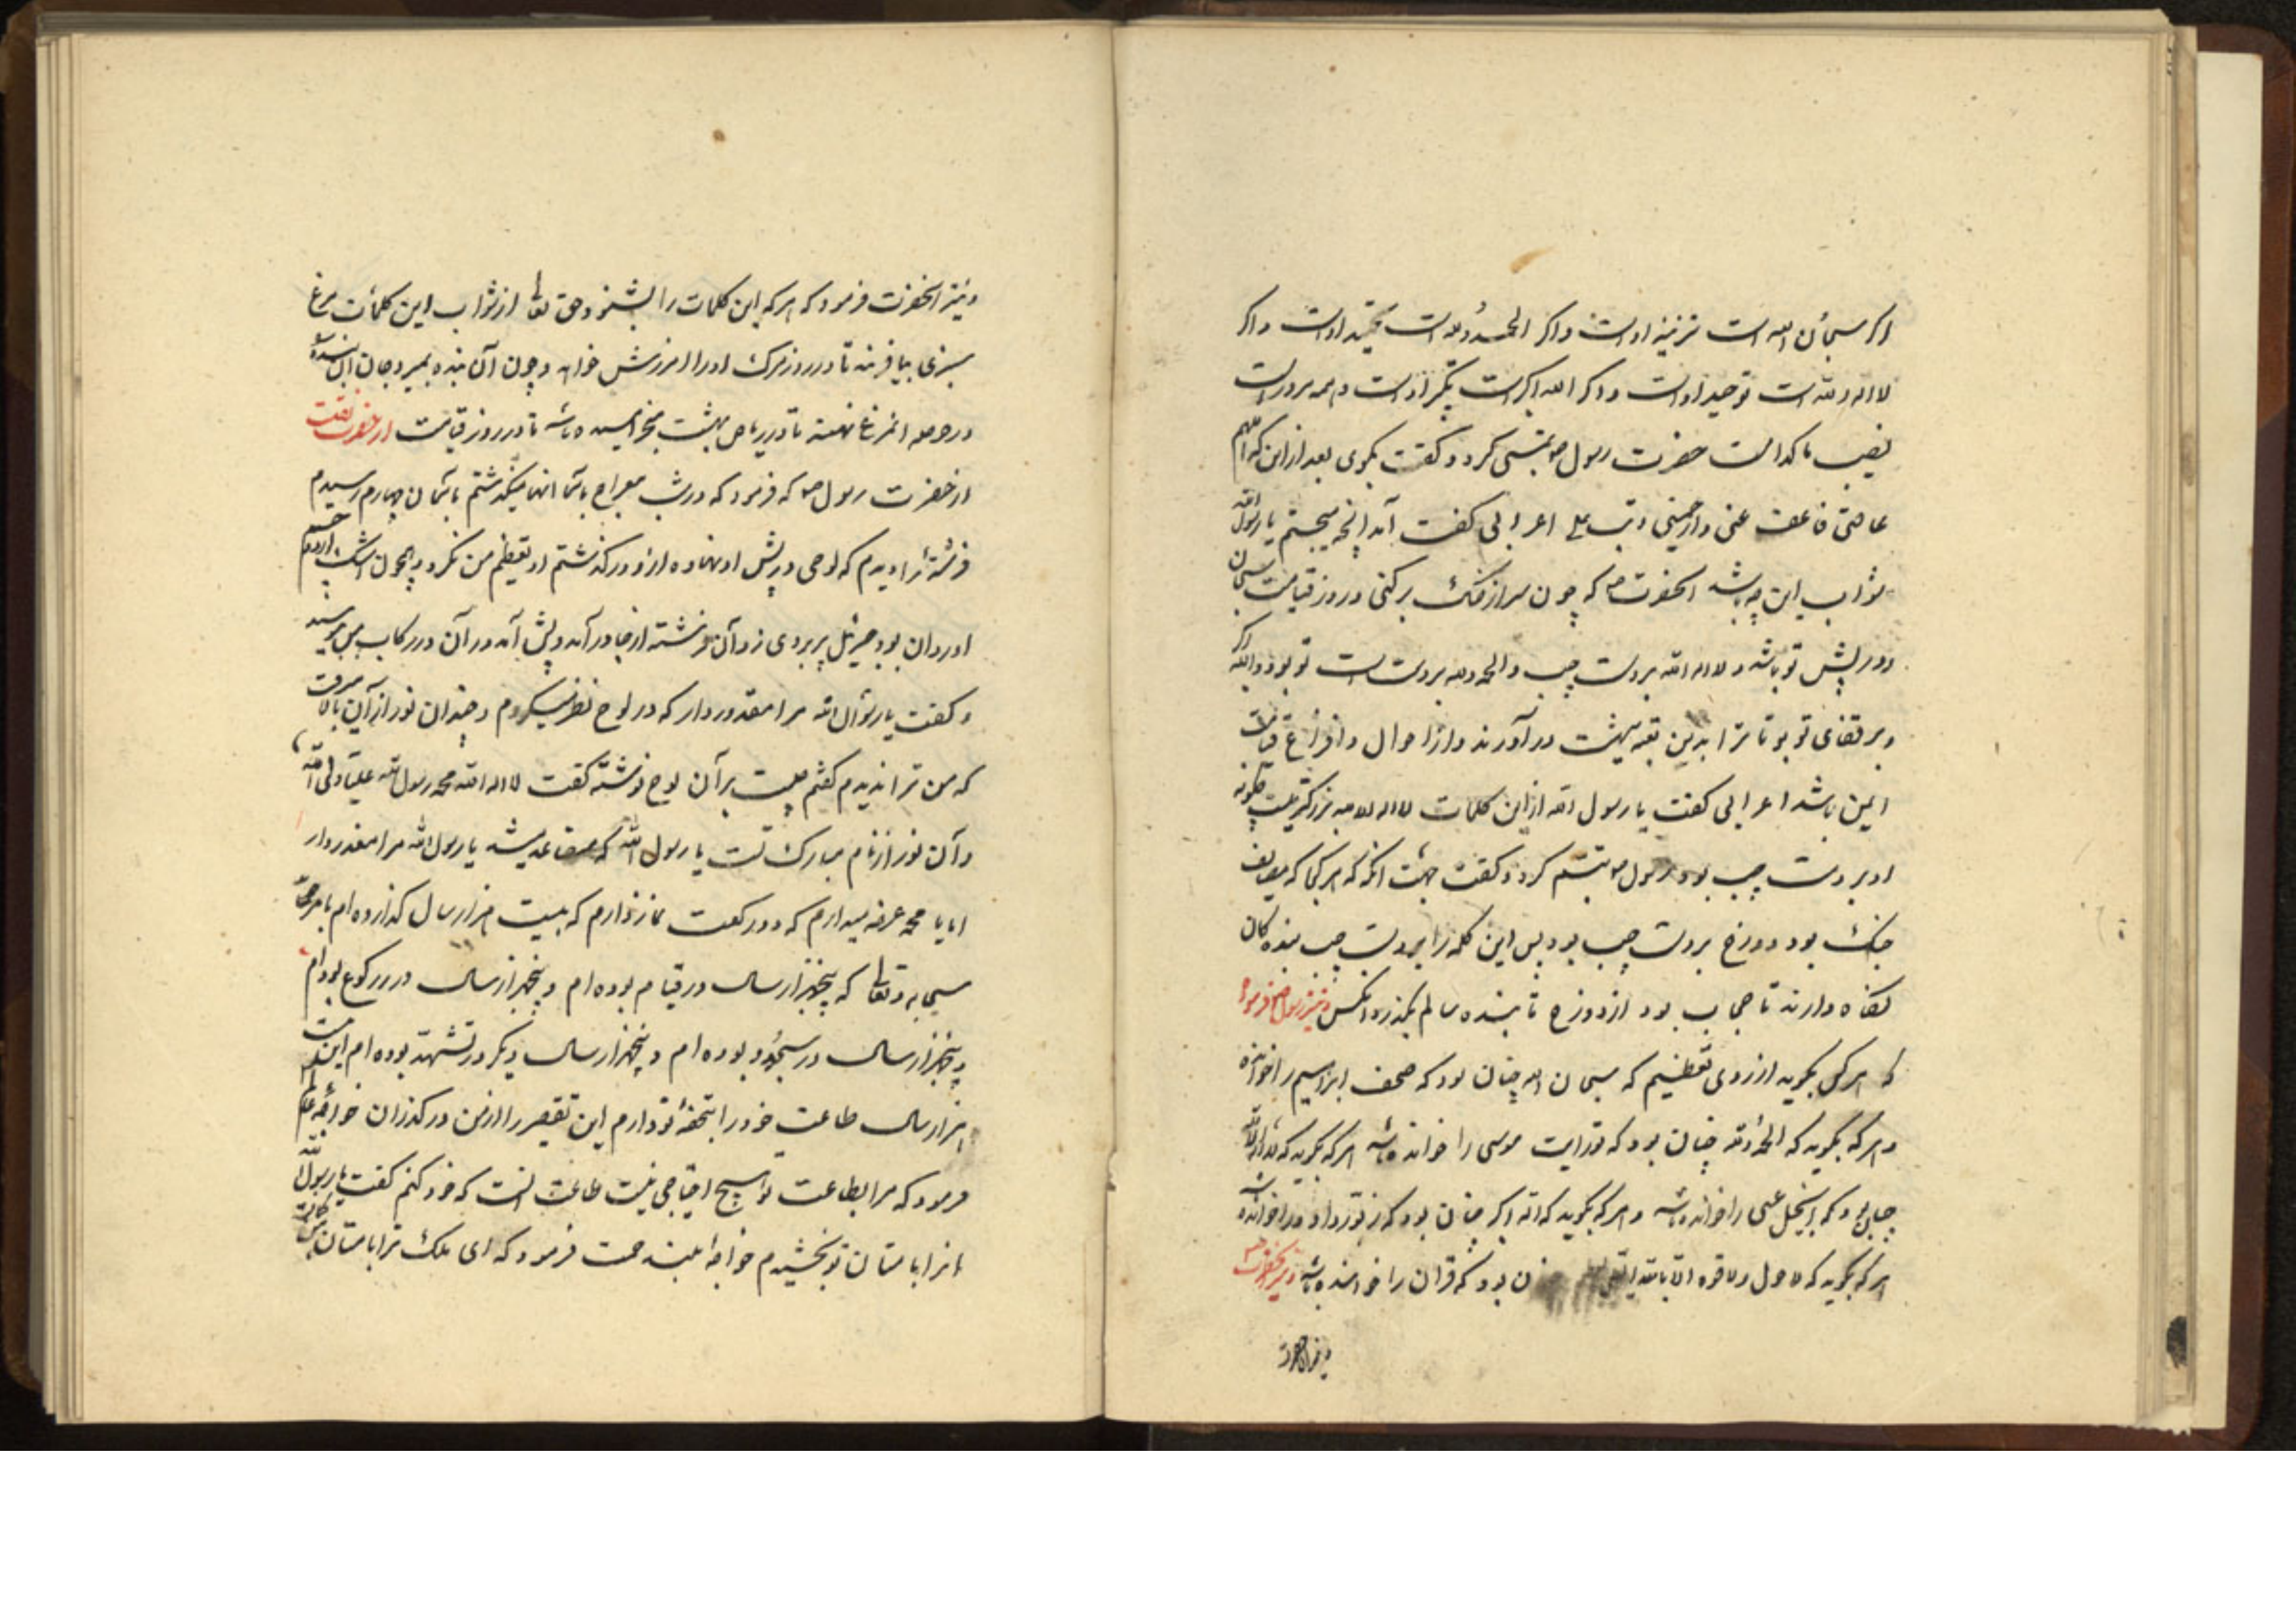 اکر سبحان الله است تنزیه اوست و اکر الحمد لله است تمجید اوست و اکر
لا اله الا الله است توحید اوست و اکر الله اکبر است تکبیر اوست
نصیب ما کدامست حضرت رسول ص تبسمی کرد و کفت بکوی بعد از این که اللهم
فاعف عنی وارحمنی وتب علی اعرابی کفت آمد انچه میجستم یا رسول الله
ثواب این چه باشد انحضرت ص که چون سر از خاک بر کنی در روز قیامت سبحان
در پیش تو باشد و لا اله الا الله بر دست چپ و الحمد لله بر دست راست تو بود و الله اکبر
و بر قفای تو بود تا ترا بدین بهشت در آورند و از احوال و افزاع قیامت
ایمن باشد اعرابی کفت یا رسول الله ازاین کلمات لا اله الا الله بزرکتریست چکونه
او بر دست چپ بود رسول ص تبسم کرد و کفت جهت انکه که هر کجا که
جنک بود دوزخ بر دست چپ بود پس این کلمه را بر دست چپ بنده کان
نکاه دارند تا حجاب بود از دوزخ تا بنده سالم بکذرد و نیز رسول ص فرمود
که هر کس بکوید از روی تعظیم که سبحان الله چنان بود که صحف ابراهیم را خوانده
و هر که بکوید که الحمد لله چنان بود که تورایت موسی را خوانده باشد هر که بکوید که لا اله الا الله
چنان بود که انجیل عیسی را خوانده باشد و هر که بکوید که الله اکبر چنان بود که زبور داود را خوانده باشد
هر که بکوید که لا حول ولا قوه الا بالله بود که قران را خوانده باشد و نیز انحضرت
و نیز انحضرت
و نیز انحضرت فرمود که هر که این کلمات را بشنود حق تعالی از ثواب این کلمات مرغ
سبزی بیافریند تا در روز مرک او را امرزش خواهد و چون آن بنده بمیرد جان ان بنده
در حوصله انمرغ نهند تا در ریاض بهشت میچرانیده باشد تا در روز قیامت
از حضرت رسول ص که فرمود که در شب معراج باسمانها میکذشتم باسمان چهارم رسیدم
فرشته را دیدم که لوحی در پیش او نهاده ازو در کذشتم او تعظیم من نکرد و همچون
او روان بود جبرئیل پر بر وی زد آن فرشته از جا در آمد و پیش آمد در آن در رکاب من
و کفت یا رسول الله مرا معذور دار که در لوح نظر میکردم و چندان نور از آن بالا میرفت
که من ترا ندیدم کفتم چیست بر آن لوح نوشته کفت لا اله الا الله محمد رسول الله علی ولی الله
و آن نور از نام مبارک تست یا رسول الله که یا رسول الله مرا معذور دار
یا محمد عرضه میدارم که دو رکعت نماز دارم که بیست هزار سال کذارده ام
سبحانه و تعالی که پنجهزار سال در قیام بوده ام و پنجهزار سال در رکوع بوده ام
و پنجهزار سال در سجود بوده ام و پنجهزار سال دیکر در تشهد بوده ام این بیست
هزار سال طاعت خود را بتحفه تو دارم این تقصیر را از من در کذران خواجه عالم
فرمود که مرا بطاعت تو هیچ احتیاجی نیست طاعت انست که خود کنم کفت یا رسول الله
انرا بامتان تو بخشیدم خواجه بلند همت فرمود که ای ملک ترا بامتان من